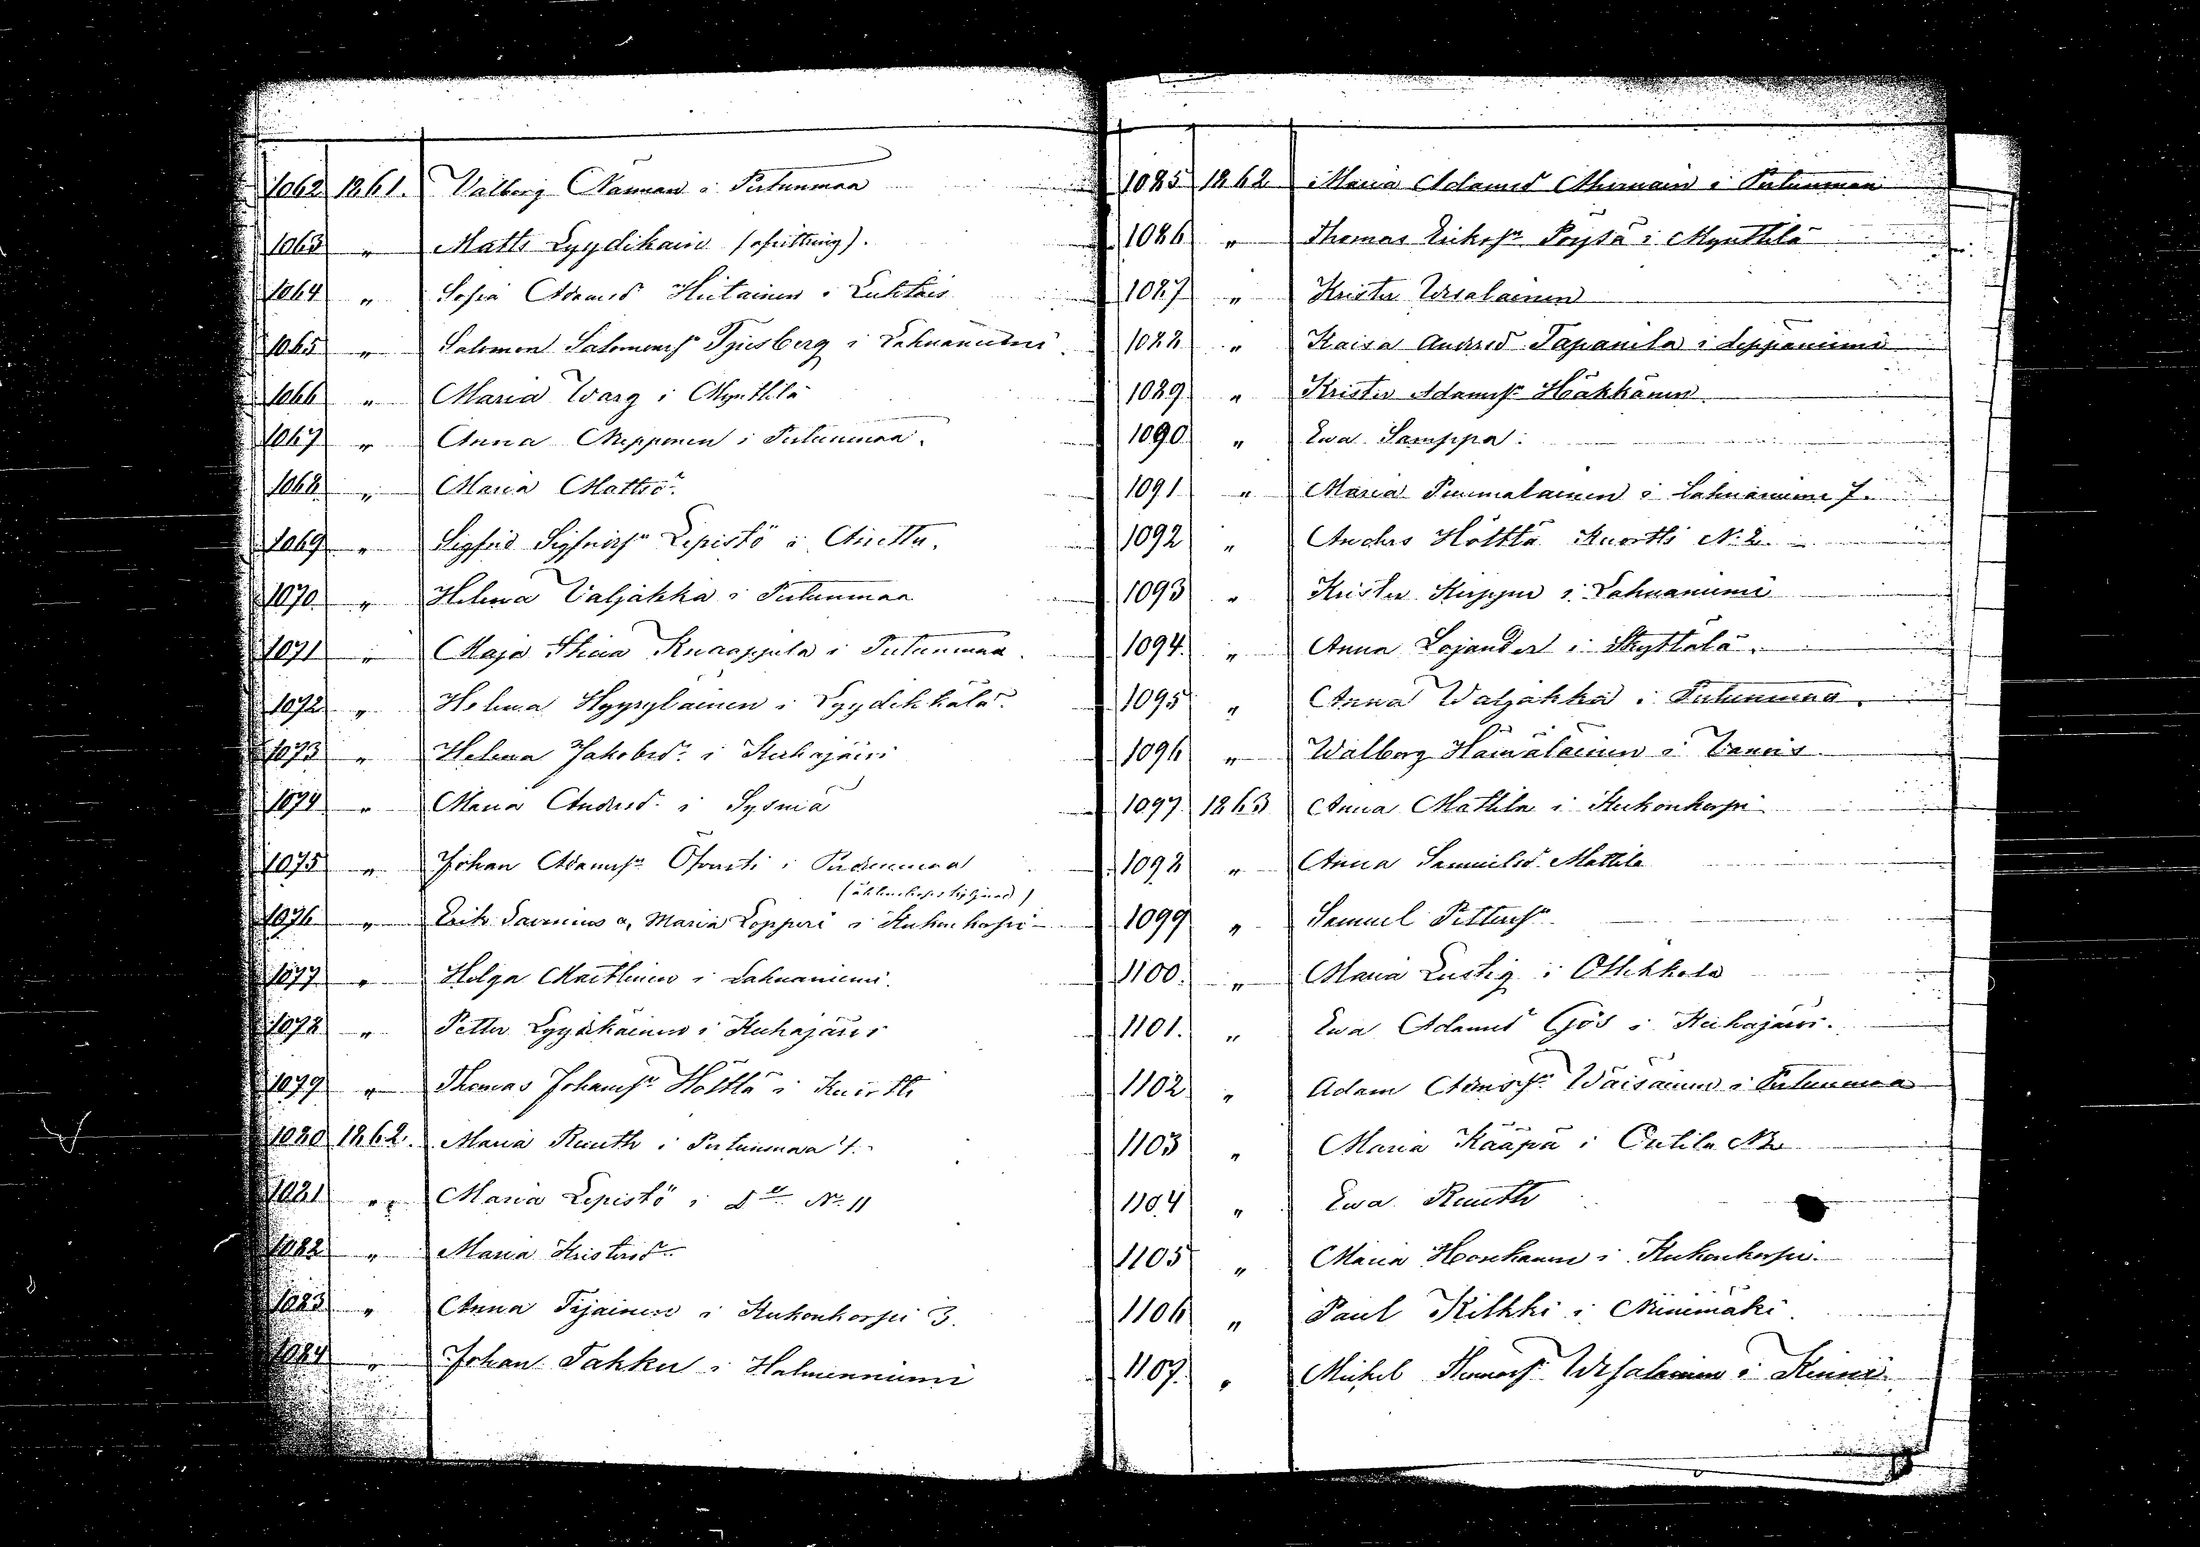 1062 1861. Valborg Näman i Pertunmaa
1063 " Matts Lyydikain (afrittning).
1064 " Sofia Adamsd Hiitainen i Luhtais
1065 " Salomon Salomonsn Tjusberg i Lahnaniemi.
1066 " Maria Warg i Mynttilä
1067 " Anna Nepponen i Pertunmaa.
1068 " Maria Mattsd.
1069 " Sigfrid Sigfridsn Lepistö i
1070 " Helena Valjakka i Pertunmaa
1071 " Maja Stina Knaappila i Pertunmaa.
1072 " Helena Hyyryläinen i Lyydikkälä.
1073 " Helena Jakobsd. i Kuhajärvi
1074 " Maria Andersd. i Sysmä
1075 " Johan Adamsn i Pertunmaa
(äktenskapsskillnad)
1076 " Erik Savenius o. Maria Lopperi i Kuhonkorpi
1077 " Helga Martinen i Lahnaniemi.
1078 " Petter Lyydikäinen i Kuhajärvi
1079 " Thomas Johansn Hölttä i Kuortti
1080 1862. Maria Ruuth i Pertunmaa 4.
1081 " Maria Lepistö i Do No 11
1082 " Maria Kristersd.
1083 " Anna Tijainen i Kuhonkorpi 3.
1084 " Johan Takku i Halmenniemi
1085 1862 Maria Adamsd i Pertunmaa
1086 " Thomas Eriksn Pöysä i Mynttilä
1087 " Krister Wesalainen
1088 " Kaisa Andersd Tapanila i Leppäniemi
1089 " Krister Adamsn Häkkänen.
1090 " Ewa Samppa.
1091 " Maria Pummalainen i Lahnaniemi 7.
1092 " Anders Hölttä Kuortti No 2.
1093 " Krister Kirppu i Lahnaniemi
1094. " Anna Lojander i Skyttälä.
1095 " Anna Waljakka i Pertunmaa.
1096 " Walborg Hämäläinen i Vanois
1097. 1863 Anna Mattila i Kuhonkorpi
1098 " Anna Samuelsd. Mattila
1099 " Samuel Pettersn
1100. " Maria Lustig i Ollikkala
1101. " Ewa Adamsd Gös i Kuhajärvi.
1102 " Adam Adamsn Wäisäinen i Pertunmaa
1103 " Maria Kääpä i Outila No 2
1104 " Ewa Ruuth
1105 " Maria Honkanen i Kuhonkorpi.
1106 " Paul Kilkki i Niinimäki.
1107. " Michel Thomasn Wesalainen i Kinni.